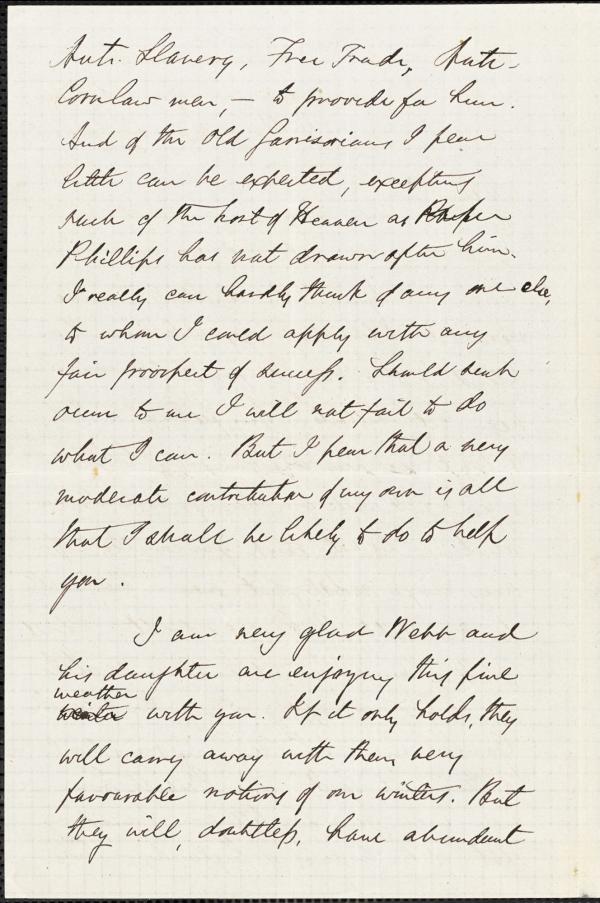 Anti-Slavery, Free Trade, Anti-
Cornlaw men, — to provide for him.
And of the Old Garrisonians I fear
little can be expected, excepting
such of the host of Heaven as
Phillips has not drawn after him.
I really can hardly think of any one else,
to whom I could apply with any
fair prospect of success. Should such
occur to me I will not fail to do
what I can. But I fear that a very
moderate contribution of my own is all
that I shall be likely to do to help
you.
I am very glad Webb and
his daughter are enjoying this fine
weather
winter with you. If it only holds, they
will carry away with them very
favourable notions of our winters. But
they will, doubtless, have abundant